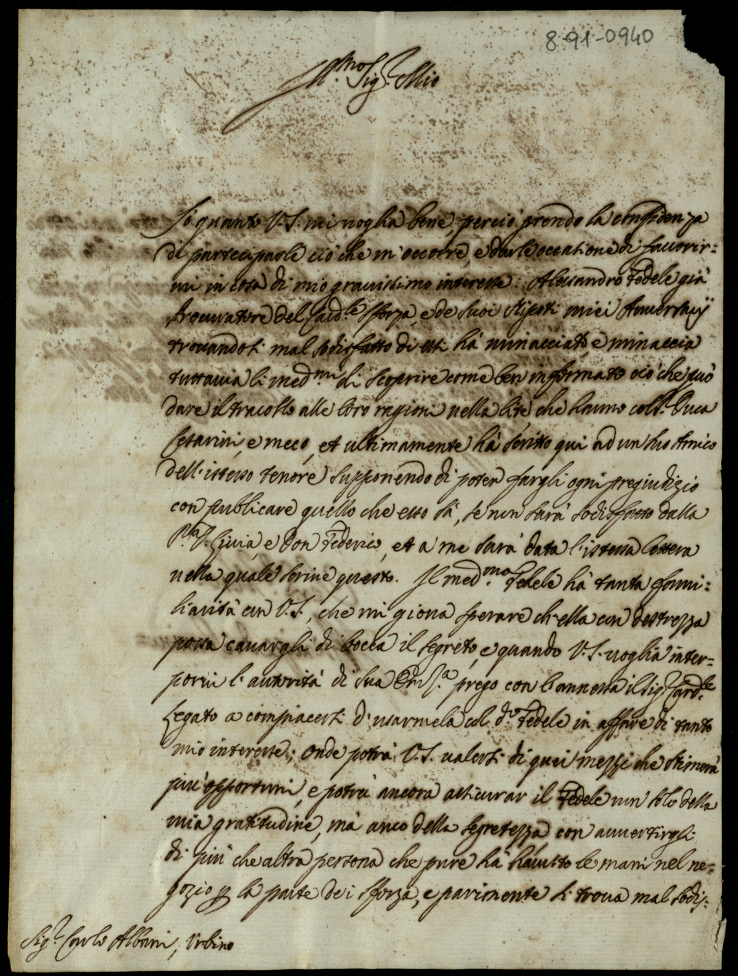 8-91-0940
Ill.mo Sig.r Mio
Sò quanto V.S. mi voglia bene, perciò prendo la confidenza
di parteciparle ciò che m'occorre, e darle occatione di fauorir=
mi in cosa di mio grauissimo interesse. Alessandro Fedele già
Procuratore del Card.le Sforza, e de suoi Nipoti miei Auuersarij
trouandosi mal sodisfatto di essi hà minacciato e minaccia
tuttauia li med.mi di scoprire come ben informato ciò che può
dare il tracollo alle loro ragioni nella lite che hanno col S. Duca
Cesarini, e meco, et ultimamente hà scritto quì ad un suo Amico
dell'istesso tenore supponendo di poter fargli ogni prejudizio
con publicare quello che esso sà, se non sarà sodisfatto dalla
Liuia e Don Federico, et a me sarà data l'istessa lettera
nella quale scriue questo. Il med.mo Fedele hà tanta fami=
liarità con V.S., che mi gioua sperare ch'ella con destrezza
possa cauargli di bocca il segreto, e quando V.S. voglia inter=
porui l'autorità di Sua prego con l'annessa il Sig.r Card.le
Legato a compiacersi d'usarmela col d.o Fedele in affare di tanto
mio interesse; Onde potrà V.S. ualersi di quei mezzi che stimerà
più opportuni, e potrà ancora assicurar il Fedele non solo della
mia gratitudine, mà anco della segretezza con auuertirgli
di più che altra persona che pure hà hauuto le mani nel ne=
gozio p la parte dei Sforza, e parimente si troua mal sodis=
Sig.r Carlo Albani, Vrbino